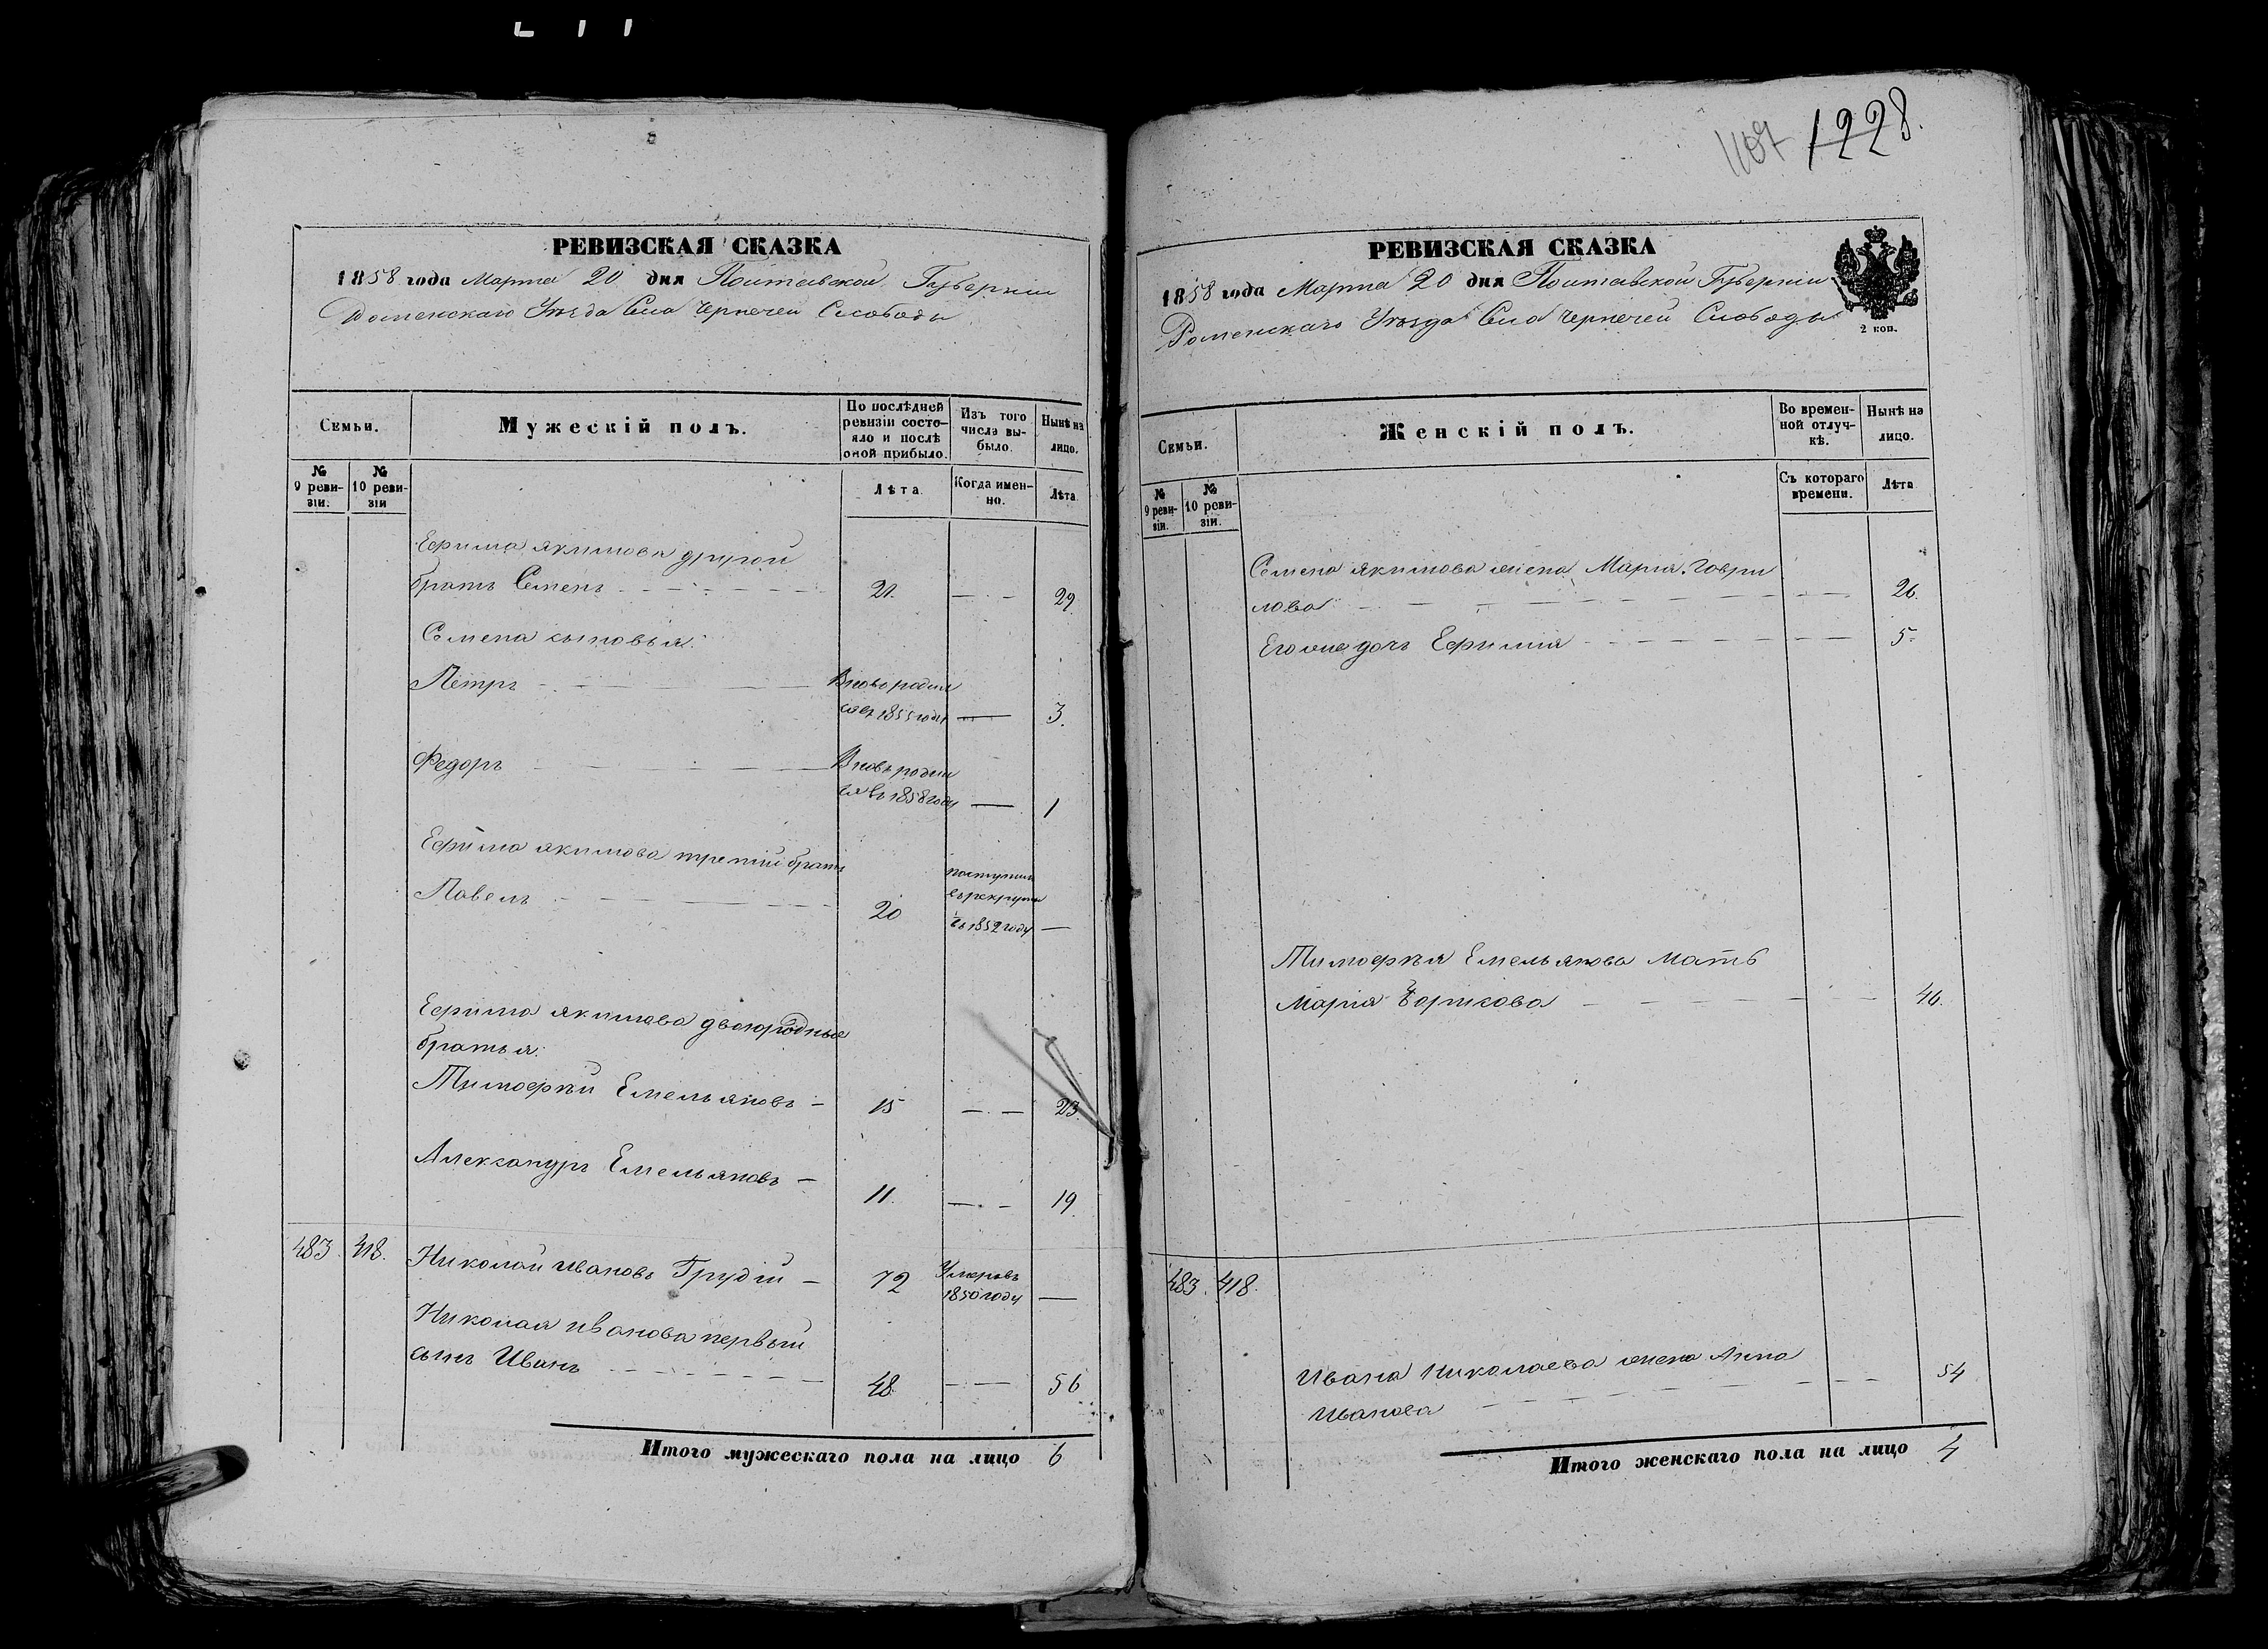 1107 1228.
РЕВИЗСКАЯ СКАЗКА
1858 года Марта 20 дня Полтавской Губерніи
Роменскаго Уѣзда Села Чернечей Слободы
Семьи.
Мужескій полъ.
По послѣдней ревизіи состояло и послѣ оной прибыло.
Изъ того числа выбыло.
Нынѣ на лицо.
№ 9 ревизіи.
№ 10 ревизіи
Лѣта.
Когда именно.
Лѣта
Ефима Якимова другой
братъ Семенъ 21. 29.
Семена сыновья:
Петръ Вновь родил
ся въ 1855 году 3.
Федоръ Вновь родил
ся въ 1858 году 1
Ефима Якимова третій братъ
Павелъ 20 поступилъ
въ рекруты
въ 1852 году
Ефима Якимова двоюродные
братья:
Тимофѣй Емельяновъ 15 23.
Александръ Емельяновъ 11. 19.
483. 418. Николай Ивановъ Грудій 72 Умеръ въ
1850 году
Николая Иванова первый
сынъ Иванъ 48. 56
Итого мужескаго пола на лицо 6
РЕВИЗСКАЯ СКАЗКА
1858 года Марта 20 дня Полтавской Губерніи
Роменскаго Уѣзда Села Чернечей Слободы
2 коп.
Семьи.
Женскій полъ.
Во временной отлучкѣ.
Нынѣ на лицо.
№ 9 ревизіи.
№ 10 ревизіи.
Съ котораго времени.
Лѣта
Семена Якимова жена Марія Гаври
лова 26.
Его же дочь Ефимия 5.
Тимофѣя Емельянова мать
Марія 46.
483. 418.
Ивана Николаева жена Анна
Иванова 54
Итого женскаго пола на лицо 4